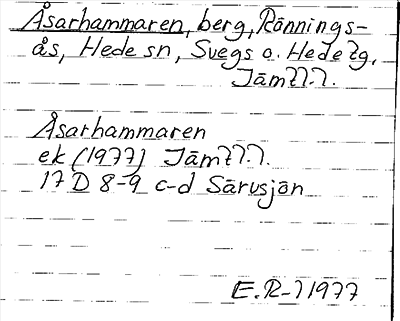 Åsarhammaren, berg, Rönnings-
ås, Hede sn, Svegs o. Hede tg,
Jämtl.
Åsarhammaren
ek (1977) Jämtl.
17 D 8-9 c-d Särvsjön
E.R-l 1977